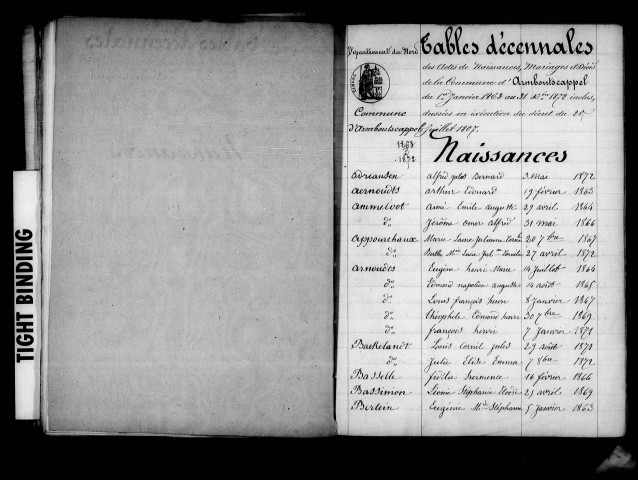 TIGHT BINDING
Département du Nord
Tables décennales
des Actes de Naissances, Mariages et Décès
de la Commune d'Armboutscappel
du 1er Janvier 1863 au 31 Xbre 1872 inclus,
Commune
d'Armboutscappel
dressées en exécution du décret du 20
Juillet 1807.
1863
à
1872
Naissances
Adriansen alfred jules Bernard 3 Mai 1872
Aernoudts arthur Edouard 19 février 1863
Ammelvot Aimé Emile auguste 29 avril 1864
do Jérôme omer alfred 31 mai 1866
Appourchaux Marie Laure Julienne 20 7bre 1867
do Berthe Mie Lucie 27 avril 1872
Arnoudts Eugène henri Marie 14 Juillet 1864
do Edmond napoléon auguste 14 août 1865
do Louis françois henri 8 Janvier 1867
do Théophile Edmond henri 30 7bre 1869
do françois henri 7 Janvier 1871
Baekelandt Louis Cornil jules 29 août 1871
do Julie Elise Emma 7 8bre 1872
Basselle fidélie hermence 16 février 1866
Bassimon Léonie Stéphanie Elodie 25 avril 1869
Bertein Eugénie Mie Stéphanie 5 Janvier 1863